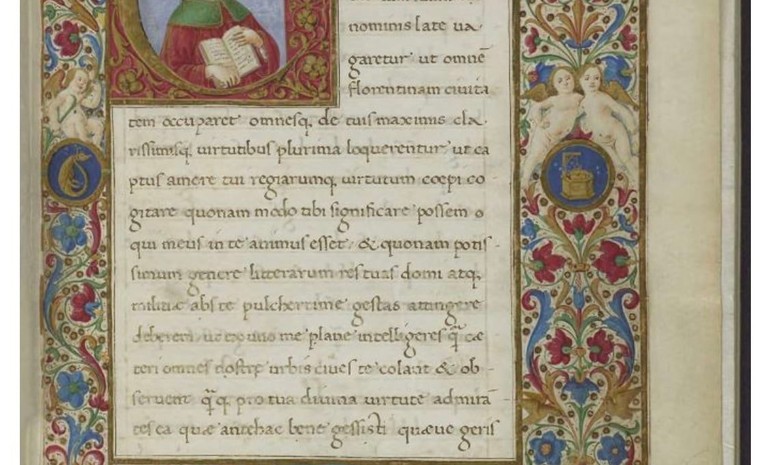 nominis late ua
garetur ut omnē
florentinam ciuita
tem occuparet omnesq; de tuis maximis cla
rissimisq; uirtutibus plurima loquerentur ut ca
ptus amore tui regiarumq; uirtutum coepi co
gitare quonam modo tibi significare possem o
qui meus in te animus esset, & quonam potis
simum genere litterarum res tuas domi atq;
militiæ abs te pulcherrime gestas attingere
deberem ut me plane intelligeres q̃ cæ
teri omnes nostræ urbis ciues te colāt & ob
seruent q̃q; pro tua diuina uirtute admirā
tes ea quæ antehac bene gessisti quæue geris